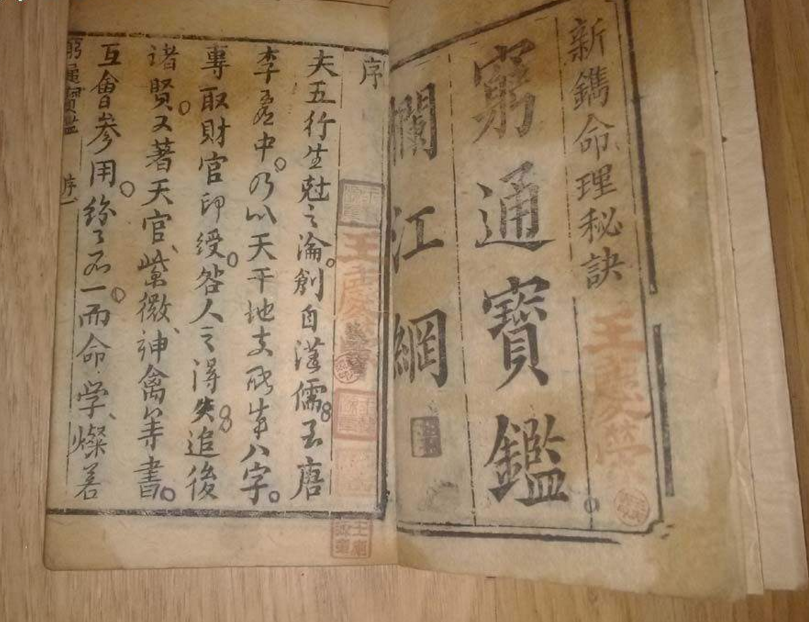 新鐫命理秘訣
窮通寶鑑
欄江網
王慶
序
夫五行生尅之淪創自漢儒至唐
李君中乃以天干地支配
八字
專取財官印綬咎人之得失追後
諸賢又著天官紫微神禽等書
互會參用紛々不一而命学燦若
窮通寶鑑
序一